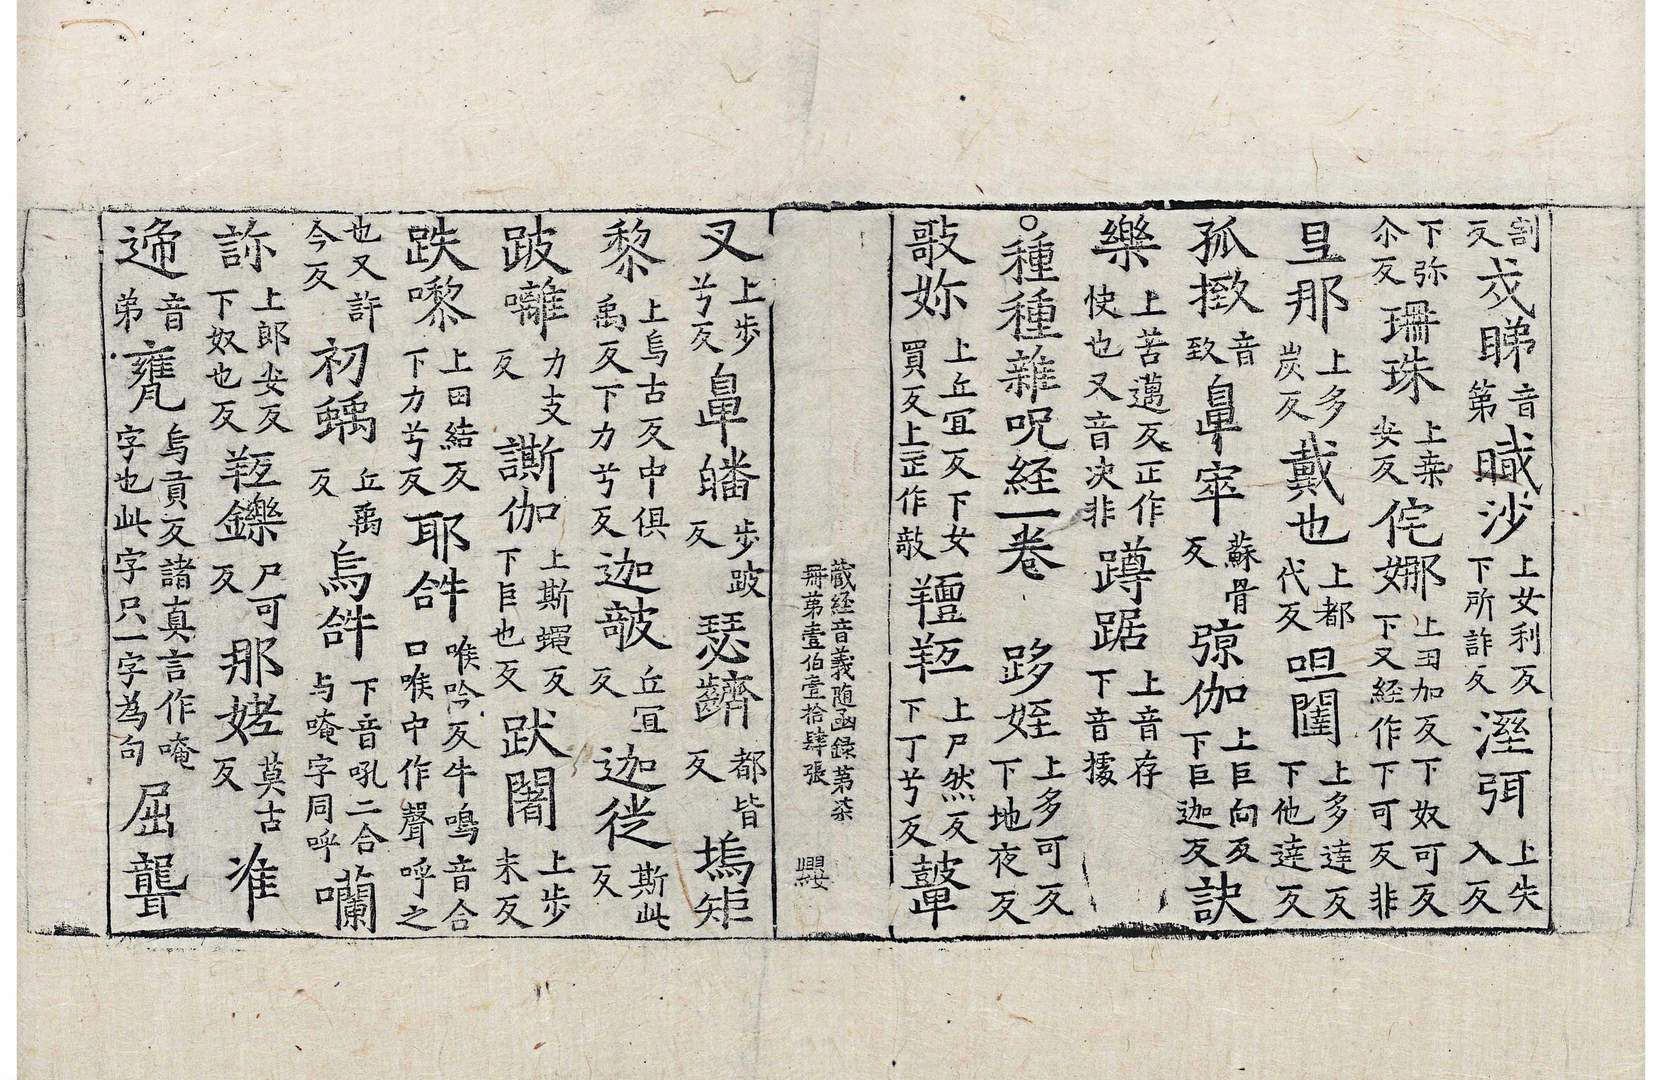 割反戍睇音第瞴沙上女利反下所詐反溼弭上失入反
下弥尒反珊珠上桒安反侘娜上丑加反下奴可反下又経作下可反非
旦那上多炭反戴也上都代反呾闥上多達反下他達反
孤掝音致鼻窣蘇骨反弶伽上巨向反下巨迦反訣
樂上苦邁反正作快也又音决非蹲踞上音存下音據
○種種雜呪経一卷 跢姪上多可反下地夜反
敲妳上丘冝反下女買反上正作敧羶羝上尸然反下丁兮反鼙
藏経音義随函録第柒
冊第壹伯壹拾肆張
纓
又上步兮反鼻皤步跛反瑟齌都皆反塢矩
黎上烏古反中俱禹反下力兮反迦攲丘冝反迦徙斯此反
跛囄力支反𧫢伽上斯蠅反下巨也反跋闍上步末反
跌㗚上田結反下力兮反耶𤙖喉吟反牛鳴音合口喉中作聲呼之
也又許今反初蝺丘禹反烏𤙖下音吼二合与唵字同呼囒
誃上郎安反下奴也反羝鑠尸可反那姥莫古反准
遆音弟甕烏貢反諸真言作唵字也此字只一字為句屈聾